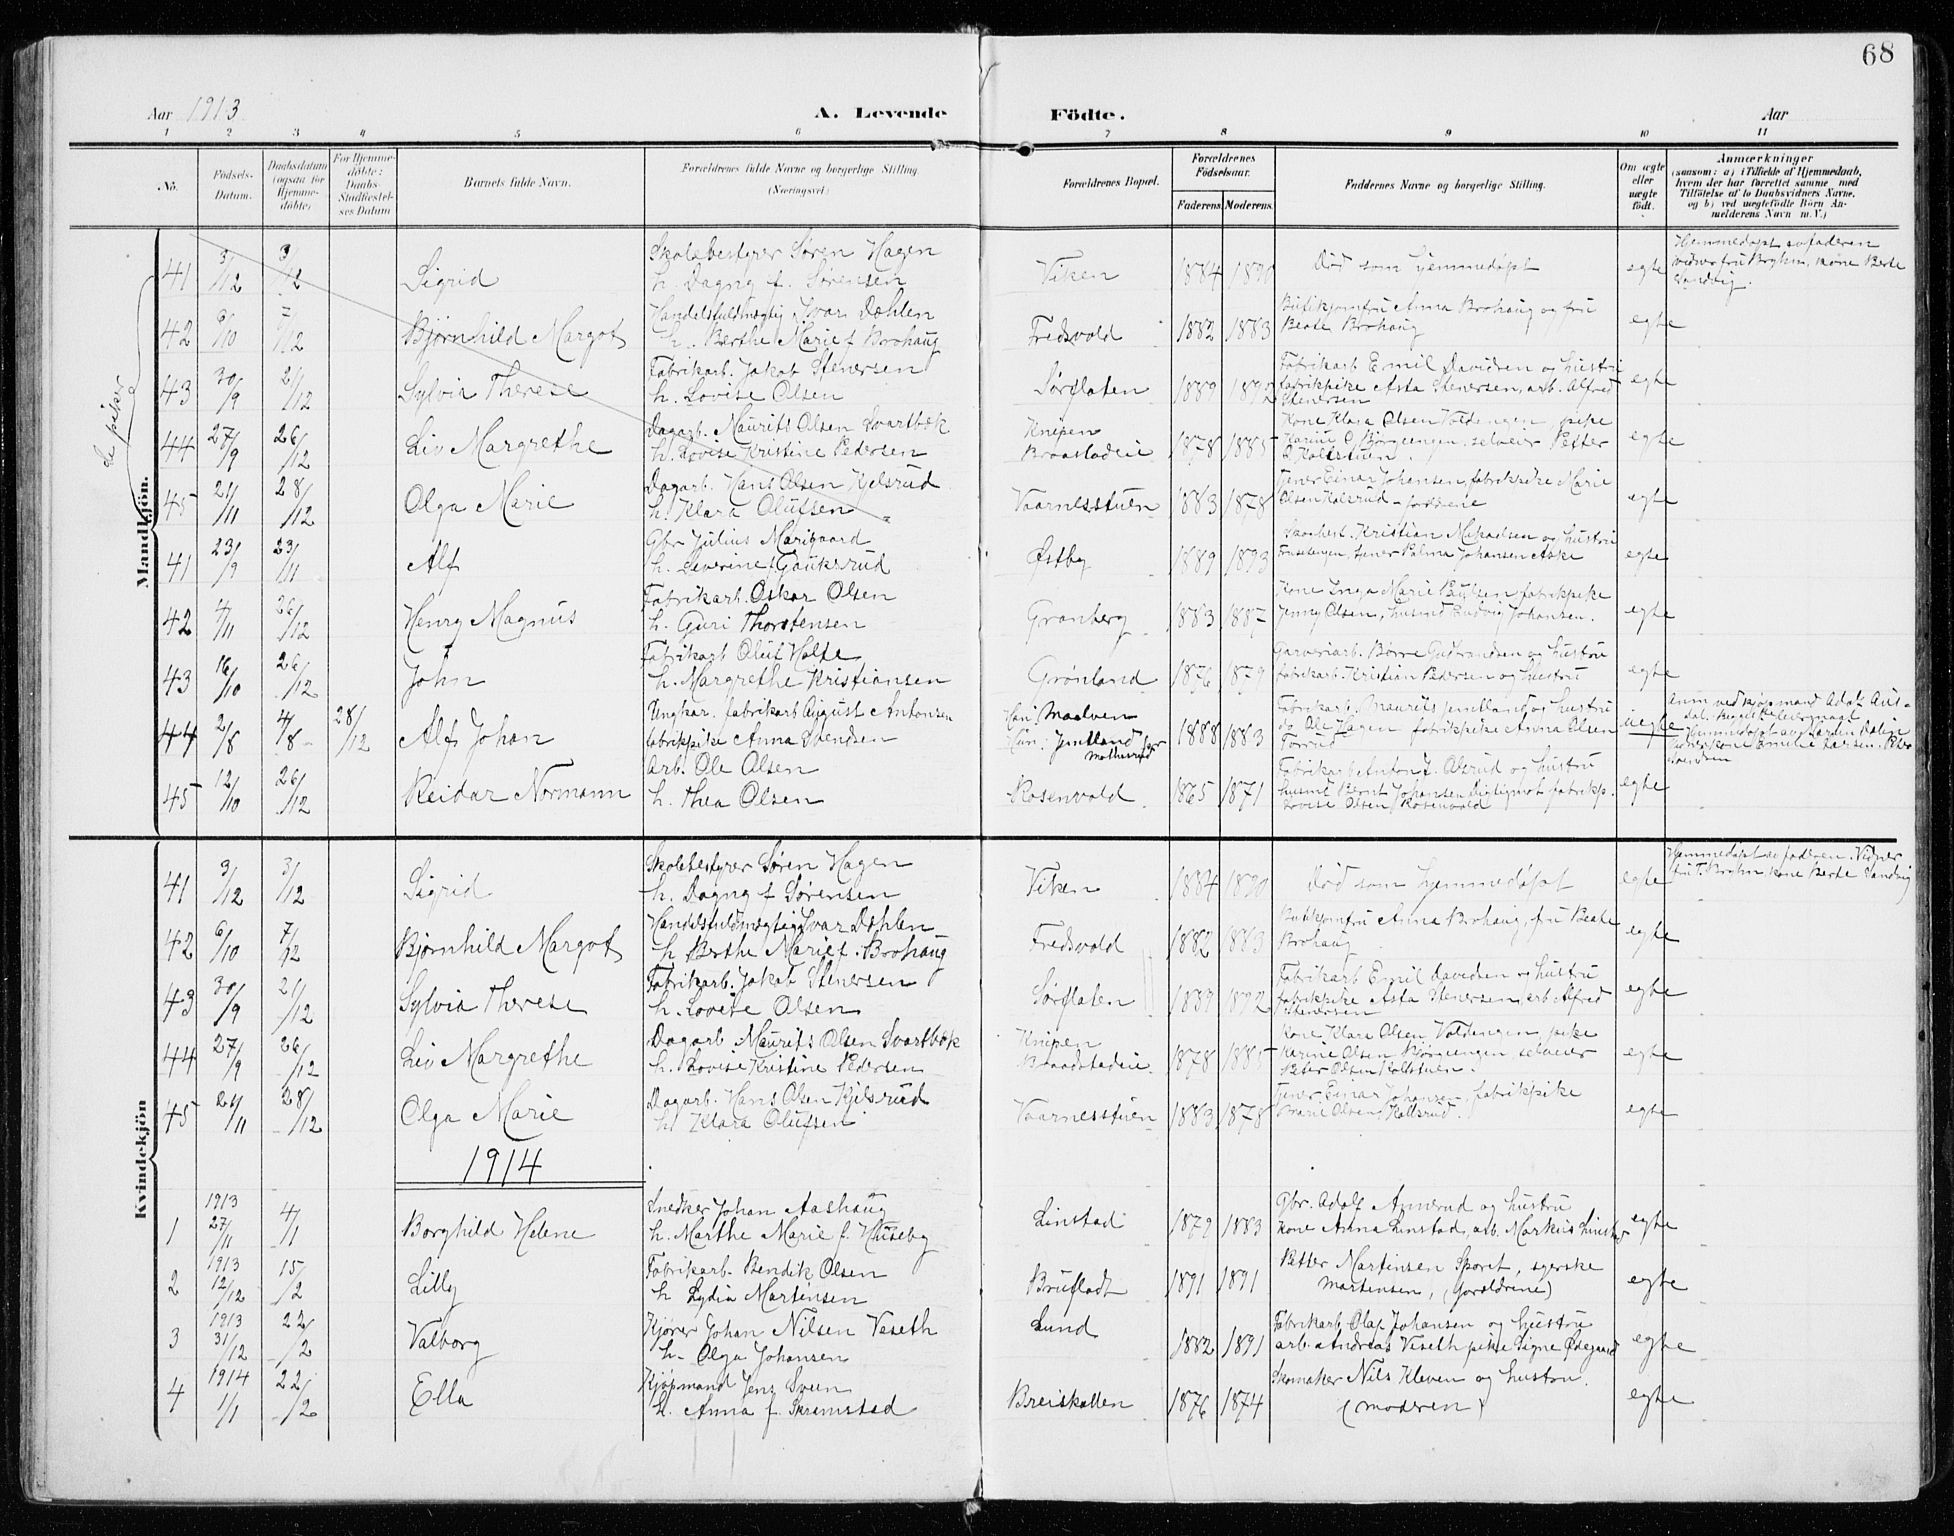 68
Aar 1913
A. Levende
Födte.
Aar
1 2 3 4 5 6 7 8 9 10 11
No.
Födsels-Datum.
Daabsdatum (ogsaa for Hjemme-döbte)
For Hjemme-döbte: Daabs-Stadfæstel-ses Datum
Barnets fulde Navn.
Forældrenes fulde Navne og borgerlige Stilling. (Næringsvei.)
Forældrenes Bopæl.
Forældrenes Födselsaar.
Faderens. Moderens.
Faddernes Navne og borgerlige Stilling.
Om ægte eller uægte födt.
Anmærkninger
(saasom: a) i Tilfælde af Hjemmedaab,
hvem der har forrettet samme med
Tilföielse af to Daabsvidners Navne,
og b) ved uægtefödte Börn An-
melderens Navn m. V.)
Mandkjön.
de piker
41 3/12 3/12 Sigrid
Skolebestyrer Søren Hagen
h. Dagny f. Sørensen
Viken 1884 1890 Død som hjemmedøpt egte
Hjemmedøpt av faderen
Sandvig.
42 6/10 7/12 Bjørnhild Margot
Handelsfuldmægtig Ivar Dæhlen
h. Berthe Marie f. Brohaug
Fredsvold 1882 1883
Butikjomfru Anna Brohaug og fru
Beate Brohaug
egte
43 30/9 21/12 Sylvia Therese
Fabrikarb. Jakob Stenersen
h. Lovise Olsen
Sørflaten 1889 1892
Fabrikarb Emil Davidsen og hustru
fabrikpike Asta Stenersen, arb. Alfred
Stenersen
egte
44 27/9 26/12 Liv Margrethe
Dagarb. Maurits Olsen Svartbæk
h. Lovise Kristine Pedersen
Knipen
Braastadeie 1878 1885
Kone Klara Olsen Voldengen, pike
Karine O. Bjørgeengen, selveier Petter
O. Kolstuen.
egte
45 21/11 28/12 Olga Marie
Dagarb. Hans Olsen Kjelsrud
h. Klara Olufsen
Vaarnesstuen 1883 1878
Tjener Einar Johansen, fabrikpike Marie
Olsen Kolsrud
egte
41 23/9 23/11 Alf
Gbr Julius Marigaard
h. Severine Gauksrud
Østby 1889 1893
egte
42 4/11 26/12 Henry Magnus
Fabrikarb. Oskar Olsen
h. Guri Thorstensen
Granberg 1883 1887
Kone Inga Marie Paulsen fabrikpike
Jenny Olsen, husmd Ludvig Johansen.
egte
43 16/10 26/12 John
Fabrikarb Oluf Holte
h. Margrethe Kristiansen
Grønland 1876 1879
Garveriarb. Børre Gudbrandsen og hustru
fabrikarb. Kristian Pedersen og hustru
egte
44 2/8 4/8 28/12 Alf Johan
Ungkar. fabrikarb August Antonsen
fabrikpike Anna Svendsen
Han: Maalven
Hun: Jemtland
1888 1883
Fabrikarb. Maurits Jemtland og hustru
do Ole Hagen fabrikpike Anna Olsen
Torrud
uegte
45 12/10 26/12 Reidar Normann
Arb. Ole Olsen
h. Thea Olsen
Rosenvold 1865 1871
Fabrikarb Anton J. Olsrud og hustru
husmd Bernt Johansen
Lovise Olsen Rosenvold
egte
Kvindekjön
41 3/12 3/12 Sigrid
Skolebestyrer Søren Hagen
h. Dagny f Sørensen
Viken 1884 1890 Død som hjemmedøpt egte
Hjemmedøpt av faderen. Vidner
42 6/10 7/12 Bjørnhild Margot
Handelsfuldmægtig Ivar Dæhlen
h Berthe Marie f. Brohaug
Fredsvold 1882 1883
Butikjomfru Anna Brohaug, fru Beate
Brohaug
egte
43 30/9 21/12 Sylvia Therese
Fabrikarb. Jakob Stenersen
h. Lovise Olsen
Sørflaten 1889 1892
Fabrikarb Emil Davidsen og hustru
fabrikpike Asta Stenersen, arb. Alfred
Stenersen
egte
44 27/9 26/12 Liv Margrethe
Dagarb Maurits Olsen Svartbæk
h. Lovise Kristine Pedersen
Knipen
Braadstadeie 1878 1885
Kone Klara Olsen Voldengen, pike
Karine Olsen Bjørgeengen, selveier
Peter Olsen Kolstuen.
egte
45 21/11 28/12 Olga Marie
Dagarb. Hans Olsen Kjelsrud
h Klara Olufsen
Vaarnesstuen 1883 1878
Tjener Einar Johansen, fabrikpike
Marie Olsen Kolsrud.
egte
1914
1 1913 27/11 4/1 Borghild Helene
Snedker Johan Aashaug
h. Marthe Marie f. Huseby
Linstad 1879 1883
Gbr. Adolf Amerud og hustru
kone Anna Linstad, arb. Markus Linstad
egte
2 1913 12/12 15/2 Lilly
Fabrikarb. Bendik Olsen
h Lydia Martinsen
Brufladt 1891 1891
Petter Martinsen Sporet, syerske
Martensen, (forældrene)
egte
3 1913 31/12 22/2 Valborg
Kjører Johan Nilsen Veseth
h. Olga Johansen
Lund 1882 1891
Fabrikarb Olaf Johansen og hustru
arb. Andreas Veseth pike Signe Ødegaard
egte
4 1914 1/1 22/2 Ella
Kjøpmand Jens Sveen
h. Anna f. Skramstad
Breiskallen 1876 1874
Skomaker Nils Kleven og hustru.
(moderen)
egte